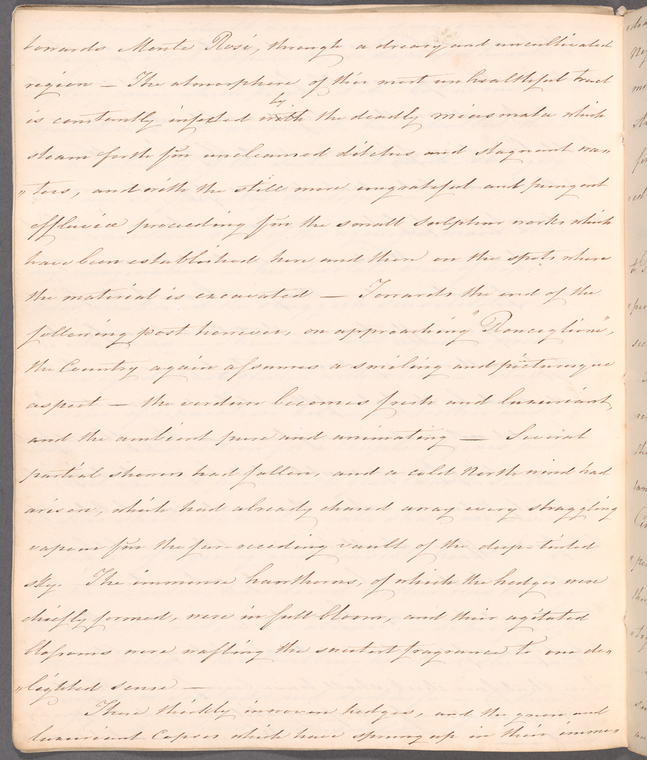 towards Monte Rosi, through a dreary and uncultivated
region — The atmosphere of this most unhealthful tract
by
is constantly infested with the deadly miasmata which
steam forth from uncleaned ditches and stagnant wa=
"ters, and with the still more ungrateful and pungent
effluvia proceeding from the small sulphur works which
have been established here and there on the spots where
the material is excavated — Towards the end of the
following post however, on approaching "Ronciglione",
the Country again assumes a smiling and picturesque
aspect — the verdure becomes fresh and luxuriant
and the ambient pure and animating — Several
partial showers had fallen, and a cold North wind had
arisen, which had already chased away every straggling
vapour from the far-receding vault of the deep-tinted
sky. The immense hawthorns, of which the hedges were
chiefly formed, were in full bloom, and their agitated
blossoms were wafting the sweetest fragrance to our de=
"lighted sense —
These thickly inwoven hedges, and the green and
luxuriant Copses which have sprung up in their imme=